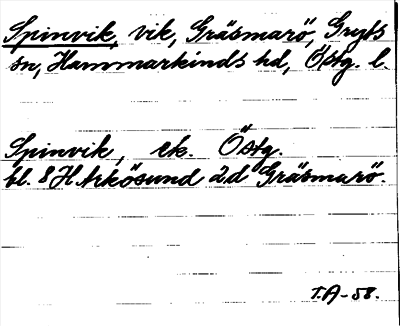 Spinvik, vik, Gräsmarö, Gryts
sn, Hammarkinds hd, Östg. l.
Spinvik, ek. Östg.
bl. 8 H. Arkösund 2d Gräsmarö.
T.A-58.